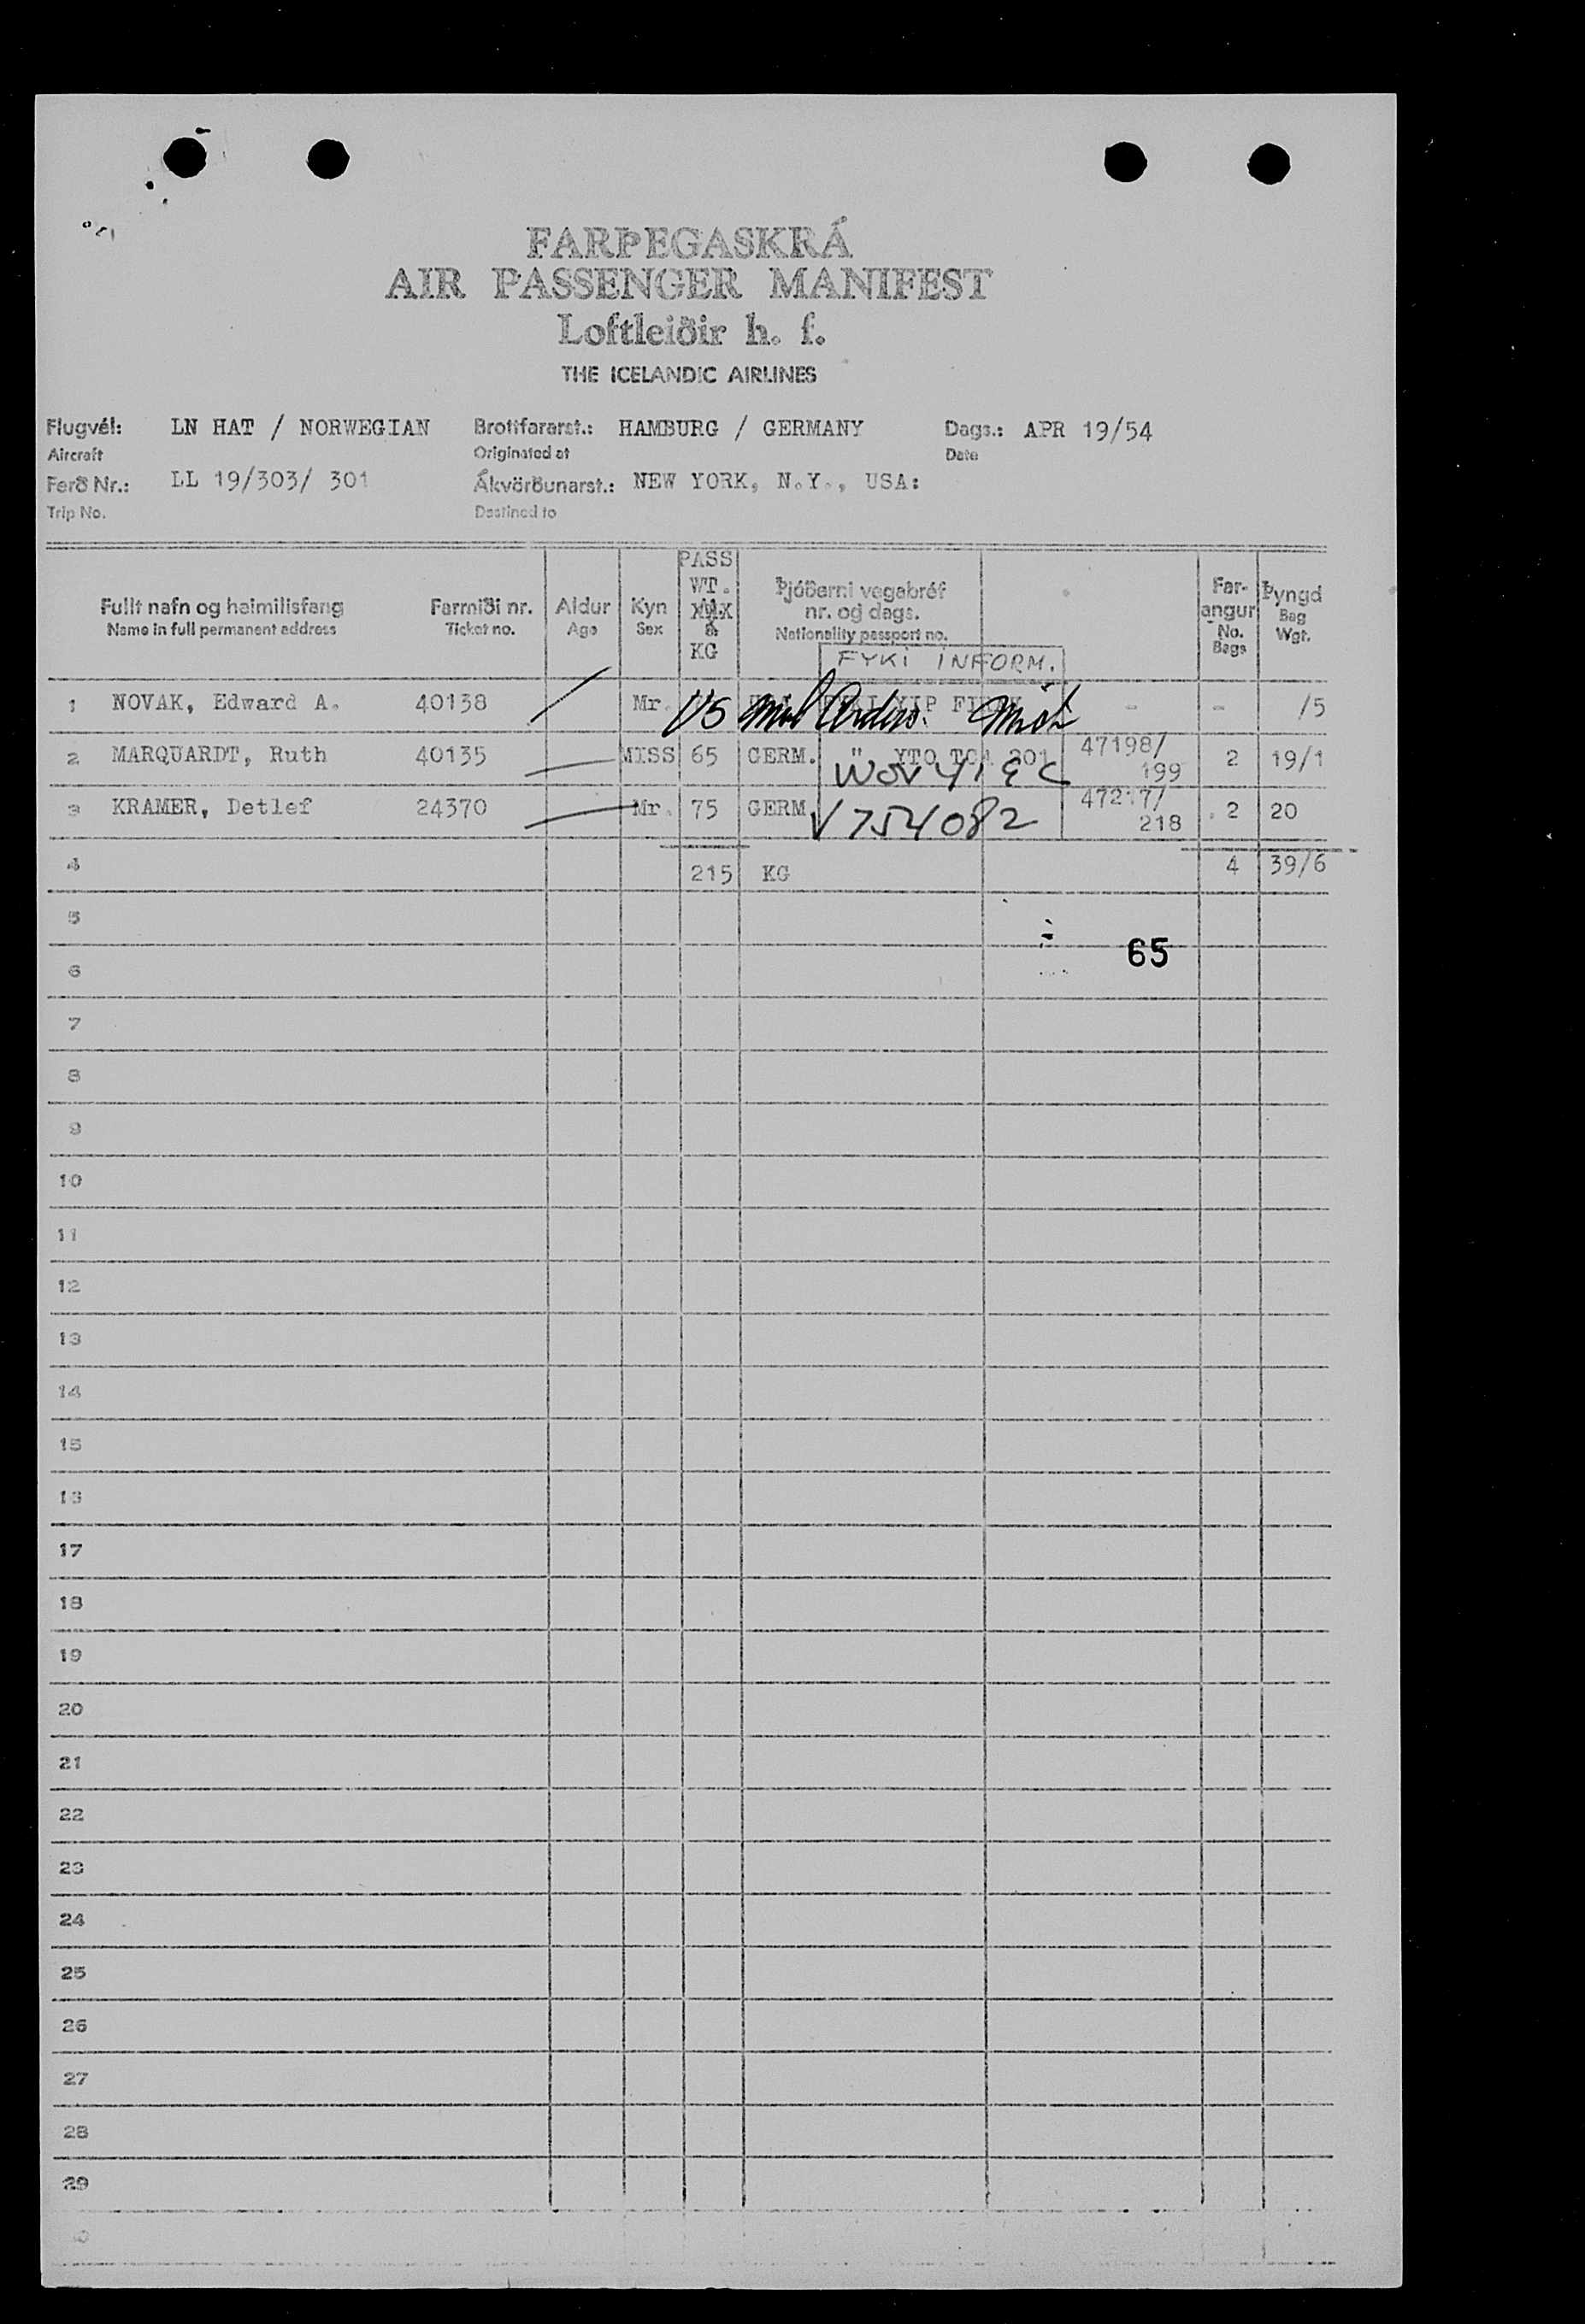 FARÞEGASKRÁ
AIR PASSENGER MANIFEST
Loftleiðir h. f.
THE ICELANDIC AIRLINES
Flugvél: LN HAT / NORWEGIAN Brottfararst.: HAMBURG / GERMANY Dags.: APR 19/54
Aircraft Originated at Date
Ferð Nr.: LL 19/303/ 301 Ákvörðunarst.: NEW YORK, N.Y., USA:
Trip No. Destined to
Fullt nafn og heimilisfang Farmiði nr. Aldur Kyn PASS WT. KG Þjóðerni vegabréf nr. og dags. Far-angur Þyngd
Name in full permanent address Ticket no. Age Sex Nationality passport no. No. Bags Bag Wgt.
FYKI INFORM.
1 NOVAK, Edward A. 40138 Mr. US - - /5
2 MARQUARDT, Ruth 40135 MISS 65 GERM. " YTO TCA 301 47198/199 2 19/1
3 KRAMER, Detlef 24370 Mr. 75 GERM V754082 218 2 20
4 215 KG 4 39/6
5
65
6
7
8
9
10
11
12
13
14
15
16
17
18
19
20
21
22
23
24
25
26
27
28
29